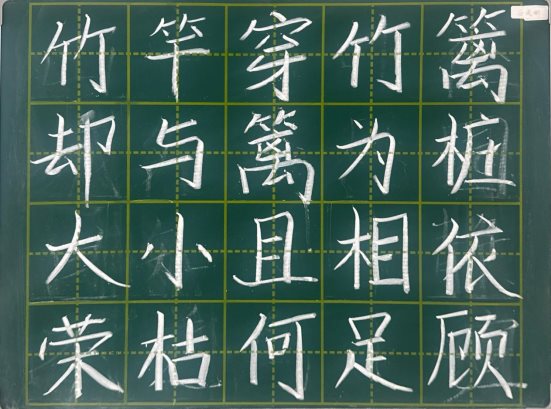 竹竿穿竹篱
却与篱为桩
大小且相依
荣枯何足顾